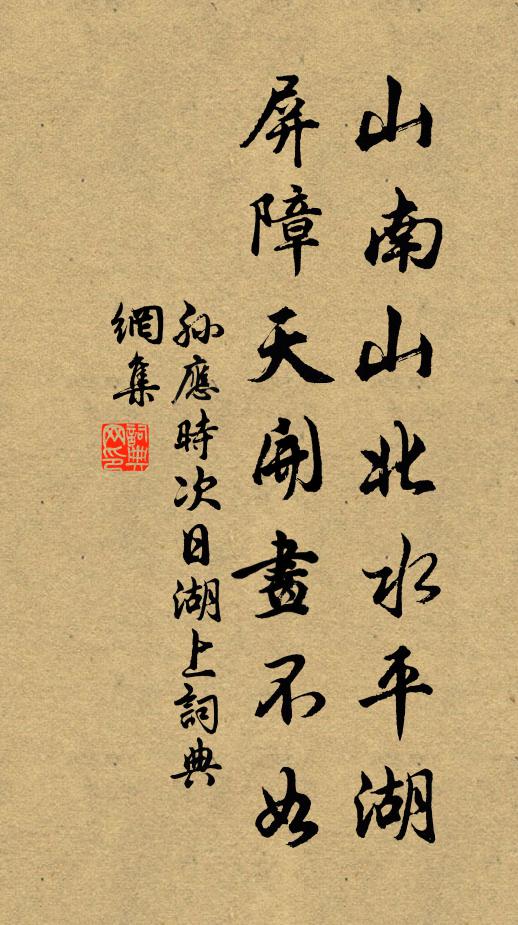 山南山北水平湖
屏障天開畫不如
孫應時次日湖上詞典
網集
詞典網印